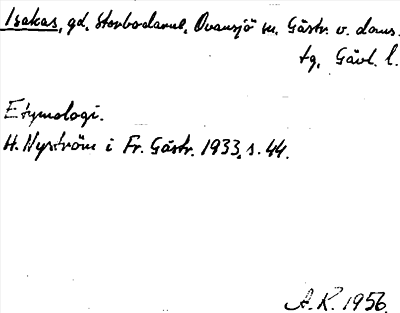 Isakas, gd. Storbodarne, Ovansjö sn. Gästr. v. doms.
tg, Gävl. l.
Etymologi.
H. Nyström i Fr. Gästr. 1933, s. 44.
A. R. 1956.